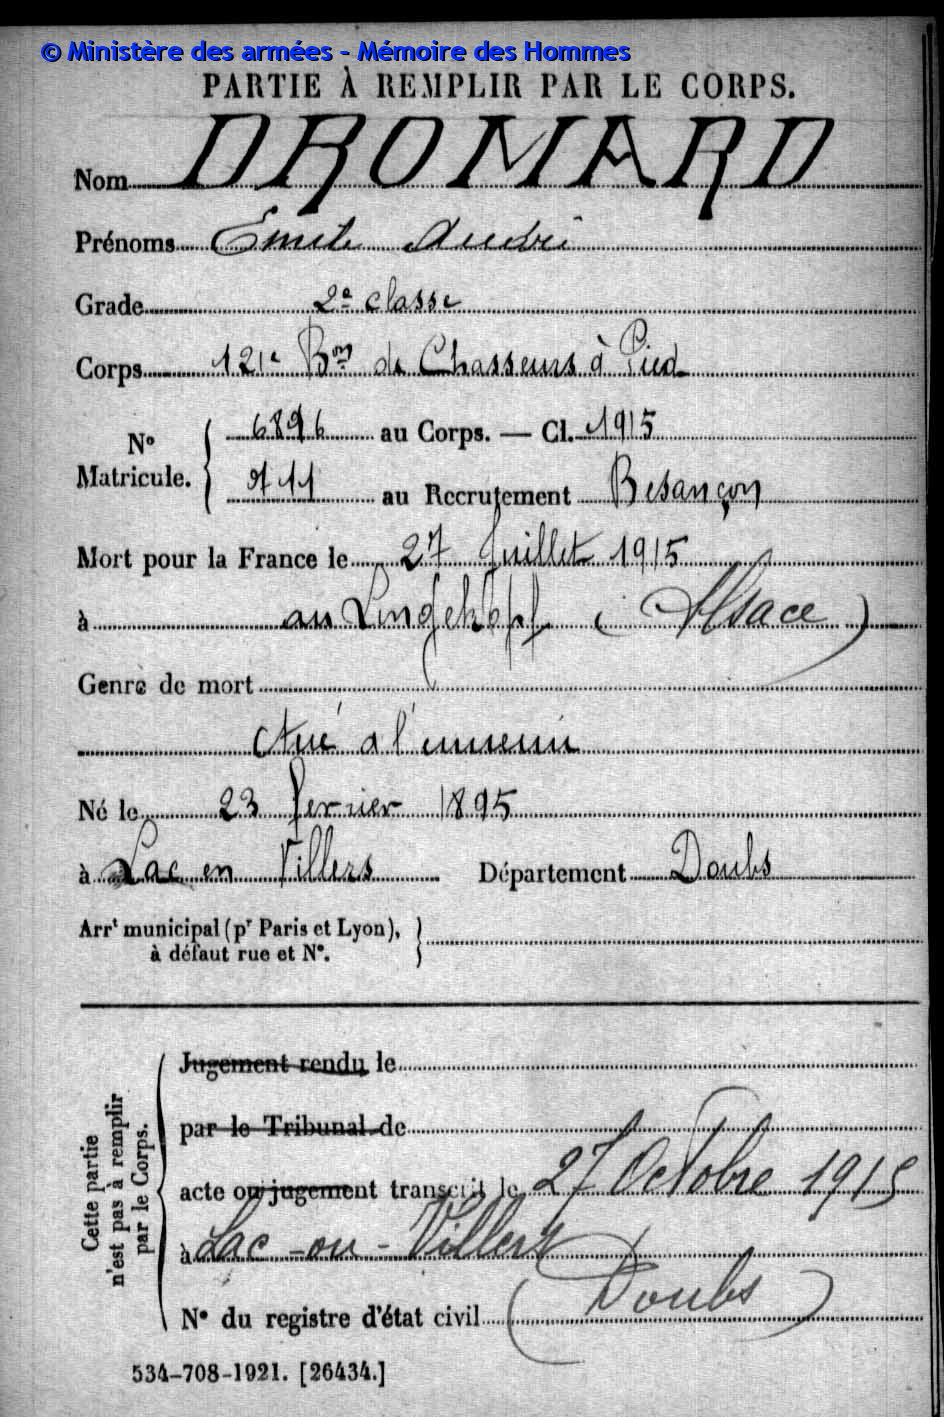 © Ministère des armées - Mémoire des Hommes
PARTIE À REMPLIR PAR LE CORPS.
Nom DROMARD
Prénoms Emile André
Grade 2e classe
Corps 121e Bon de Chasseurs à Pied
N° Matricule. 6896 au Corps. — Cl. 1915
911 au Recrutement Besançon
Mort pour la France le 27 Juillet 1915
à au Lingekopf (Alsace)
Genre de mort
tué à l'ennemi
Né le 23 février 1895
à Lac en Villers Département Doubs
Arrt municipal (pr Paris et Lyon),
à défaut rue et N°.
Cette partie
n'est pas à remplir
par le Corps.
Jugement rendu le
par le Tribunal de
acte ou jugement transcrit le 27 Octobre 1915
à Lac-ou-Villers
(Doubs)
N° du registre d'état civil
534-708-1921. [26434.]